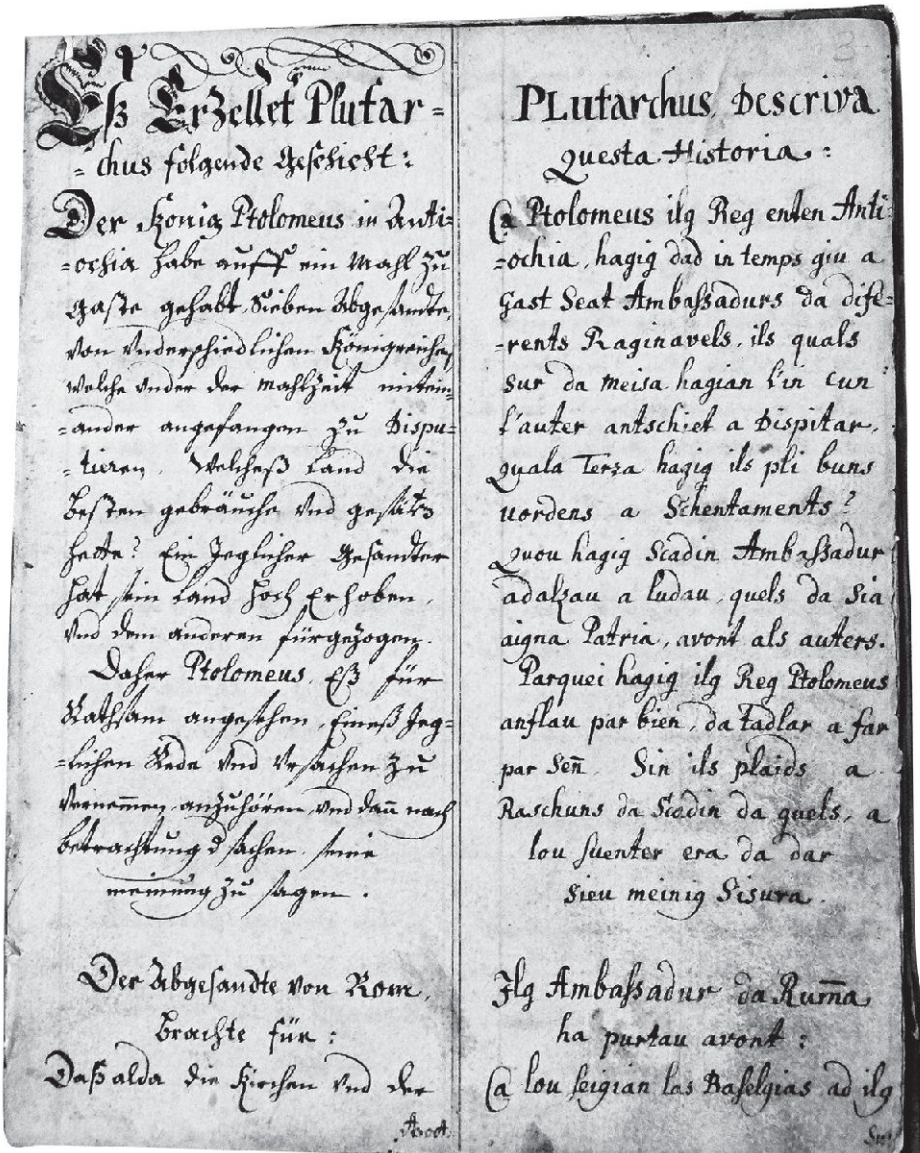 Eß Erzellet Plutar=
=chus folgende Geschicht:
Der König Ptolomeus in Anti=
=ochia habe auff ein Mahl zu
Gaste gehabt Sieben Abgesandte,
von Vnderschiedlichen Königreichen,
welche vnder der mahlzeit mitein=
=ander angefangen zu Dispu=
=tieren, Welcheß Land die
besten gebräuche vnd gesätz
hette? Ein Jeglicher Gesandter
hat sein Land hoch Erhoben,
vnd dem anderen fürgezogen.
Daher Ptolomeus, Eß für
Rathsam angesehen, Eineß Jeg=
=lichen Rede vnd Vrsachen zu
Vernemmen, anzuhören, vnd dañ nach
betrachtung d sachen, seine
meinung zu sagen.
Der Abgesandte von Rom,
brachte für:
Daß alda die Kirchen vnd der
PLutarchus, Descriva
Questa Historia:
Ca Ptolomeus ilg Reg enten Anti=
=ochia, hagig dad in temps giu a
Gast Seat Ambaßadurs da dife=
=rents Raginavels, ils quals
sur da meisa hagian l'in cun
l'auter antschiet a Dispitar,
Quala Terra hagig ils pli buns
uordens a Schentaments?
Quou hagig Scadin Ambaßadur
adalzau a ludau, quels da Sia
aigna Patria, avont als auters.
Parquei hagig ilg Reg Ptolomeus
anflau par bien, da tadlar a far
par Señ, Sin ils plaids a
Raschuns da Scadin da quels, a
lou suenter era da dar
Sieu meinig Sisura.
Ilg Ambaßadur da Rum̄a,
ha purtau avont:
Ca lou seigian las Baselgias ad ilg